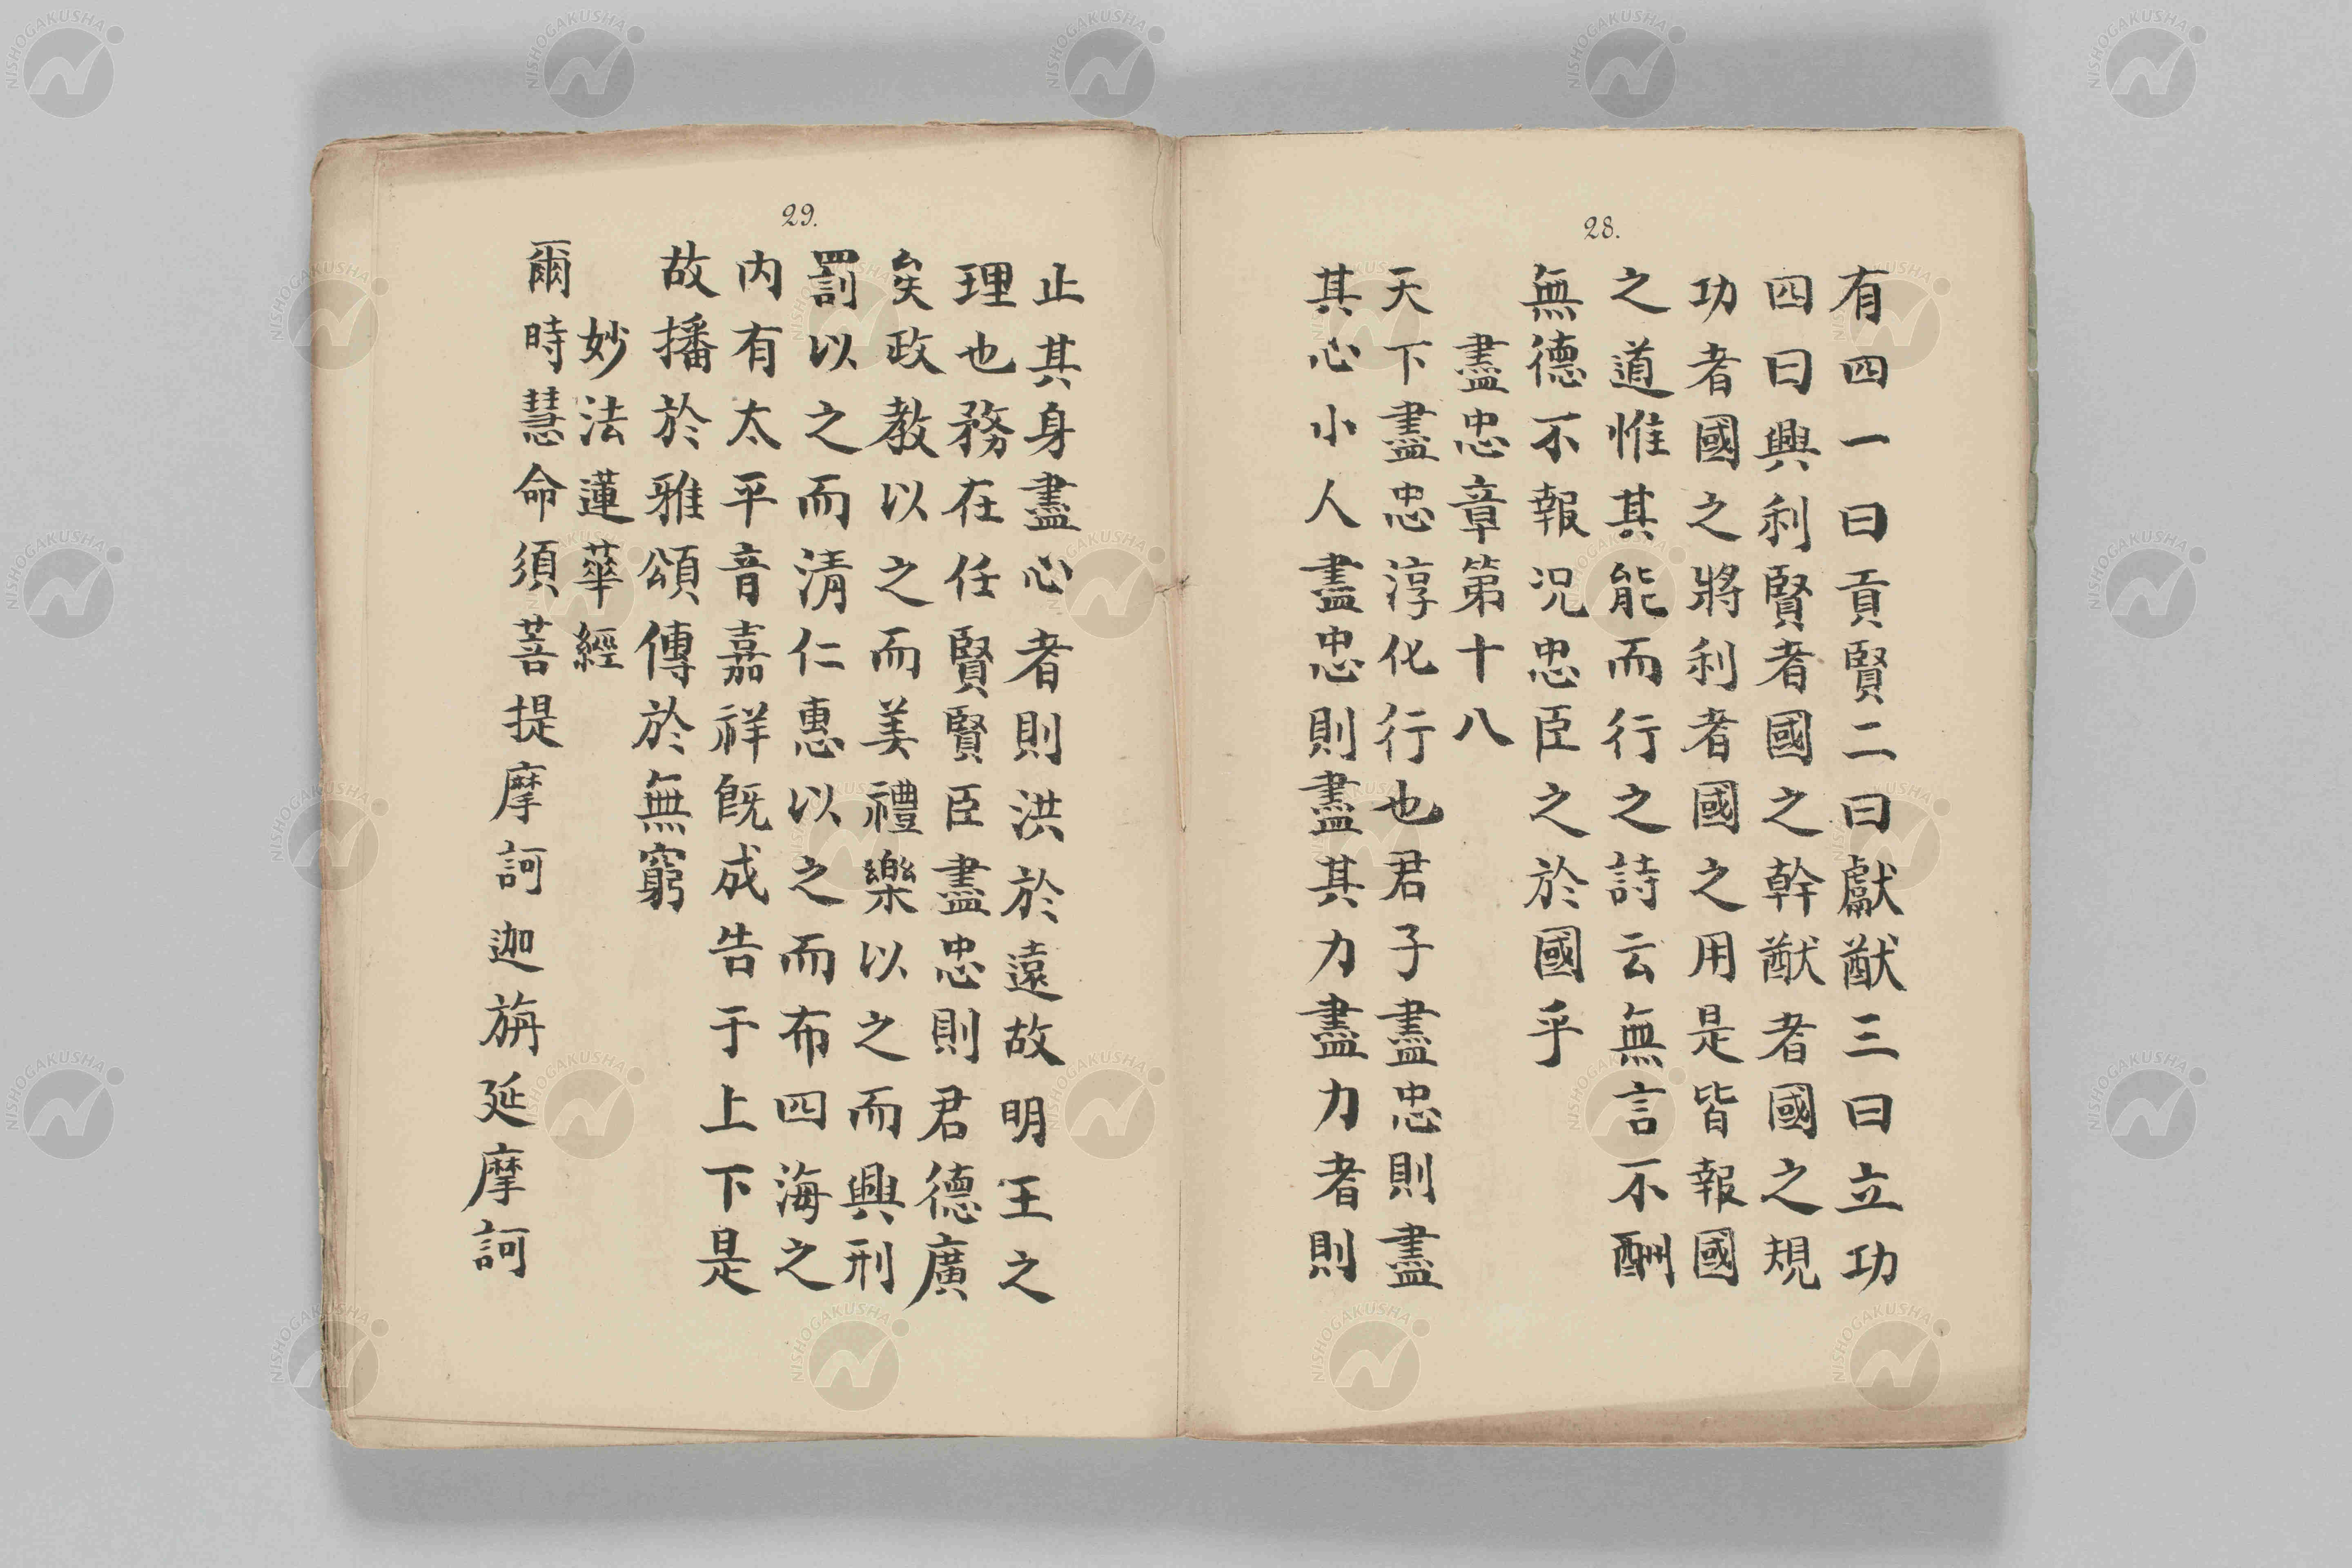 28.
有四一曰貢賢二曰獻猷三曰立功
四曰興利賢者國之幹猷者國之規
功者國之將利者國之用是皆報國
之道惟其能而行之詩云無言不酬
無德不報況忠臣之於國乎
盡忠章第十八
天下盡忠淳化行也君子盡忠則盡
其心小人盡忠則盡其力盡力者則
29.
止其身盡心者則洪於遠故明王之
理也務在任賢賢臣盡忠則君德廣
矣政教以之而美禮樂以之而興刑
罰以之而清仁惠以之而布四海之
内有太平音嘉祥既成告于上下是
故播於雅頌傳於無窮
妙法蓮華經
爾時慧命須菩提摩訶迦旃延摩訶
NISHOGAKUSHA